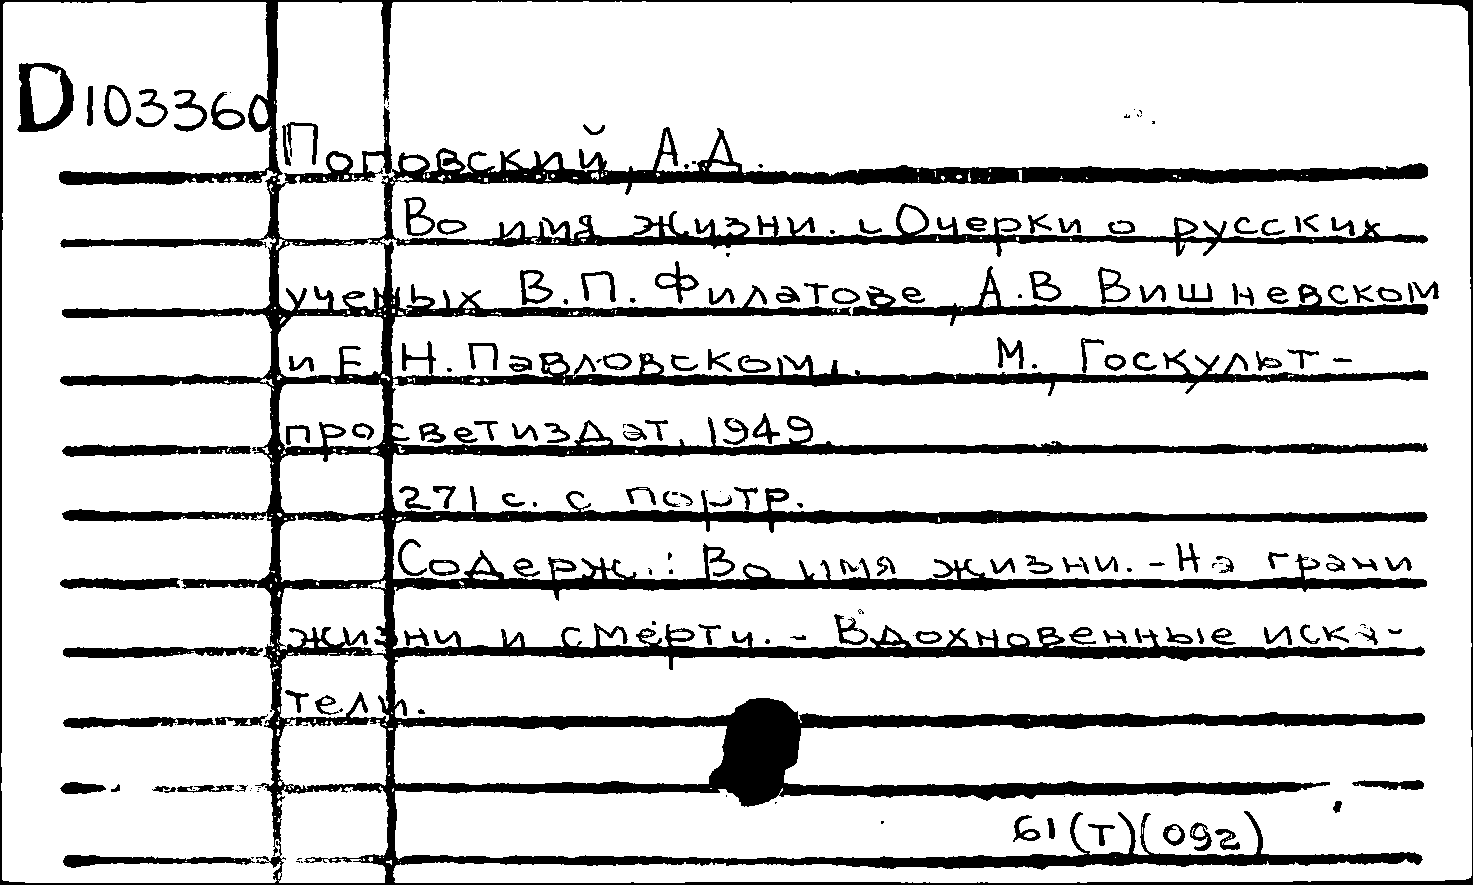 D103360
Поповский, А.Д.
Во имя жизни. [Очерки о русских
ученых В.П. Филатове, А.В Вишневском
и Е.Н. Павловском]. М., Госкульт-
просветиздат, 1949.
271 с. с портр.
Содерж.: Во имя жизни. - На грани
жизни и смерти. - Вдохновенные иска-
тели.
61(Т)(092)